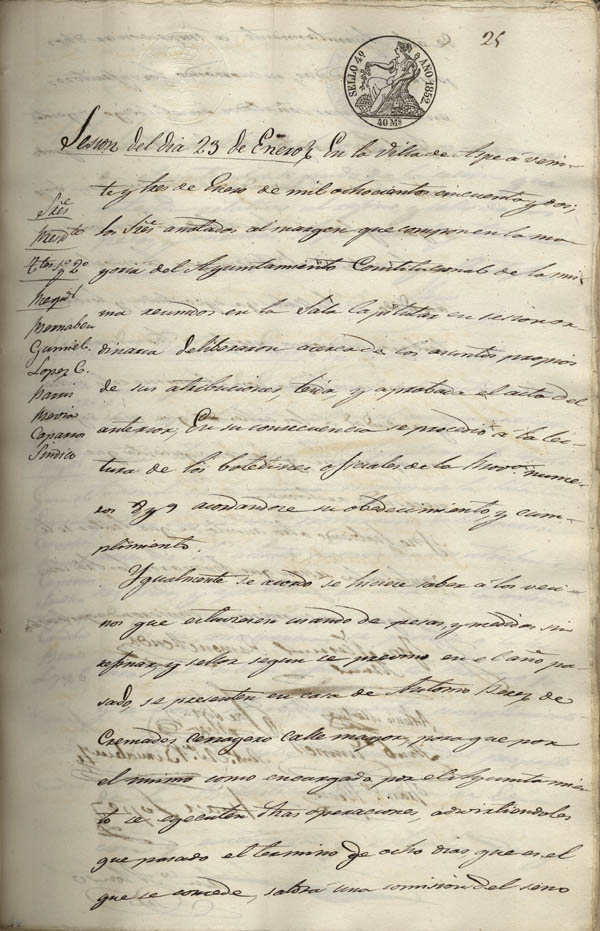 25
SELLO 4º AÑO 1852
40 Ms
Sesion del dia 23 de Enero En la Villa de Aspe á vein-
te y tres de Enero de mil ochocientos cincuenta y dos;
los Sres anotados al margen que componen la ma-
yoria del Ayuntamiento Constitucional de la mis-
ma reunidos en la Sala Capitular en sesion or-
dinaria deliberaron acerca de los asuntos propios
de sus atribuciones, leida y aprobada el acta del
anterior; En su consecuencia se procedió a la lec-
tura de los boletines oficiales de la Prova nume-
ros 8 y 9 acordandose su obedecimiento y cum-
plimiento.
Ygualmente se acordó se hiciese saber a los veci-
nos que estuvieren usando de pesas, y medidas sin
refinar, y sellar segun se previno en el año pa-
sado se presenten en casa de Antonio Perez de
Cremades Cerragero Calle mayor, para que por
el mismo como encargado por el Ayuntamien-
to se egecuten dhas operaciones, advirtiendoles
que pasado el termino de ocho dias que es el
que se concede, saldrá una comision del seno
Sres
Presidte
Ttes 1º y 2º
Regs
Bernabeu
Gumiel
Lopez C.
Pavia
Caparros
Sindico